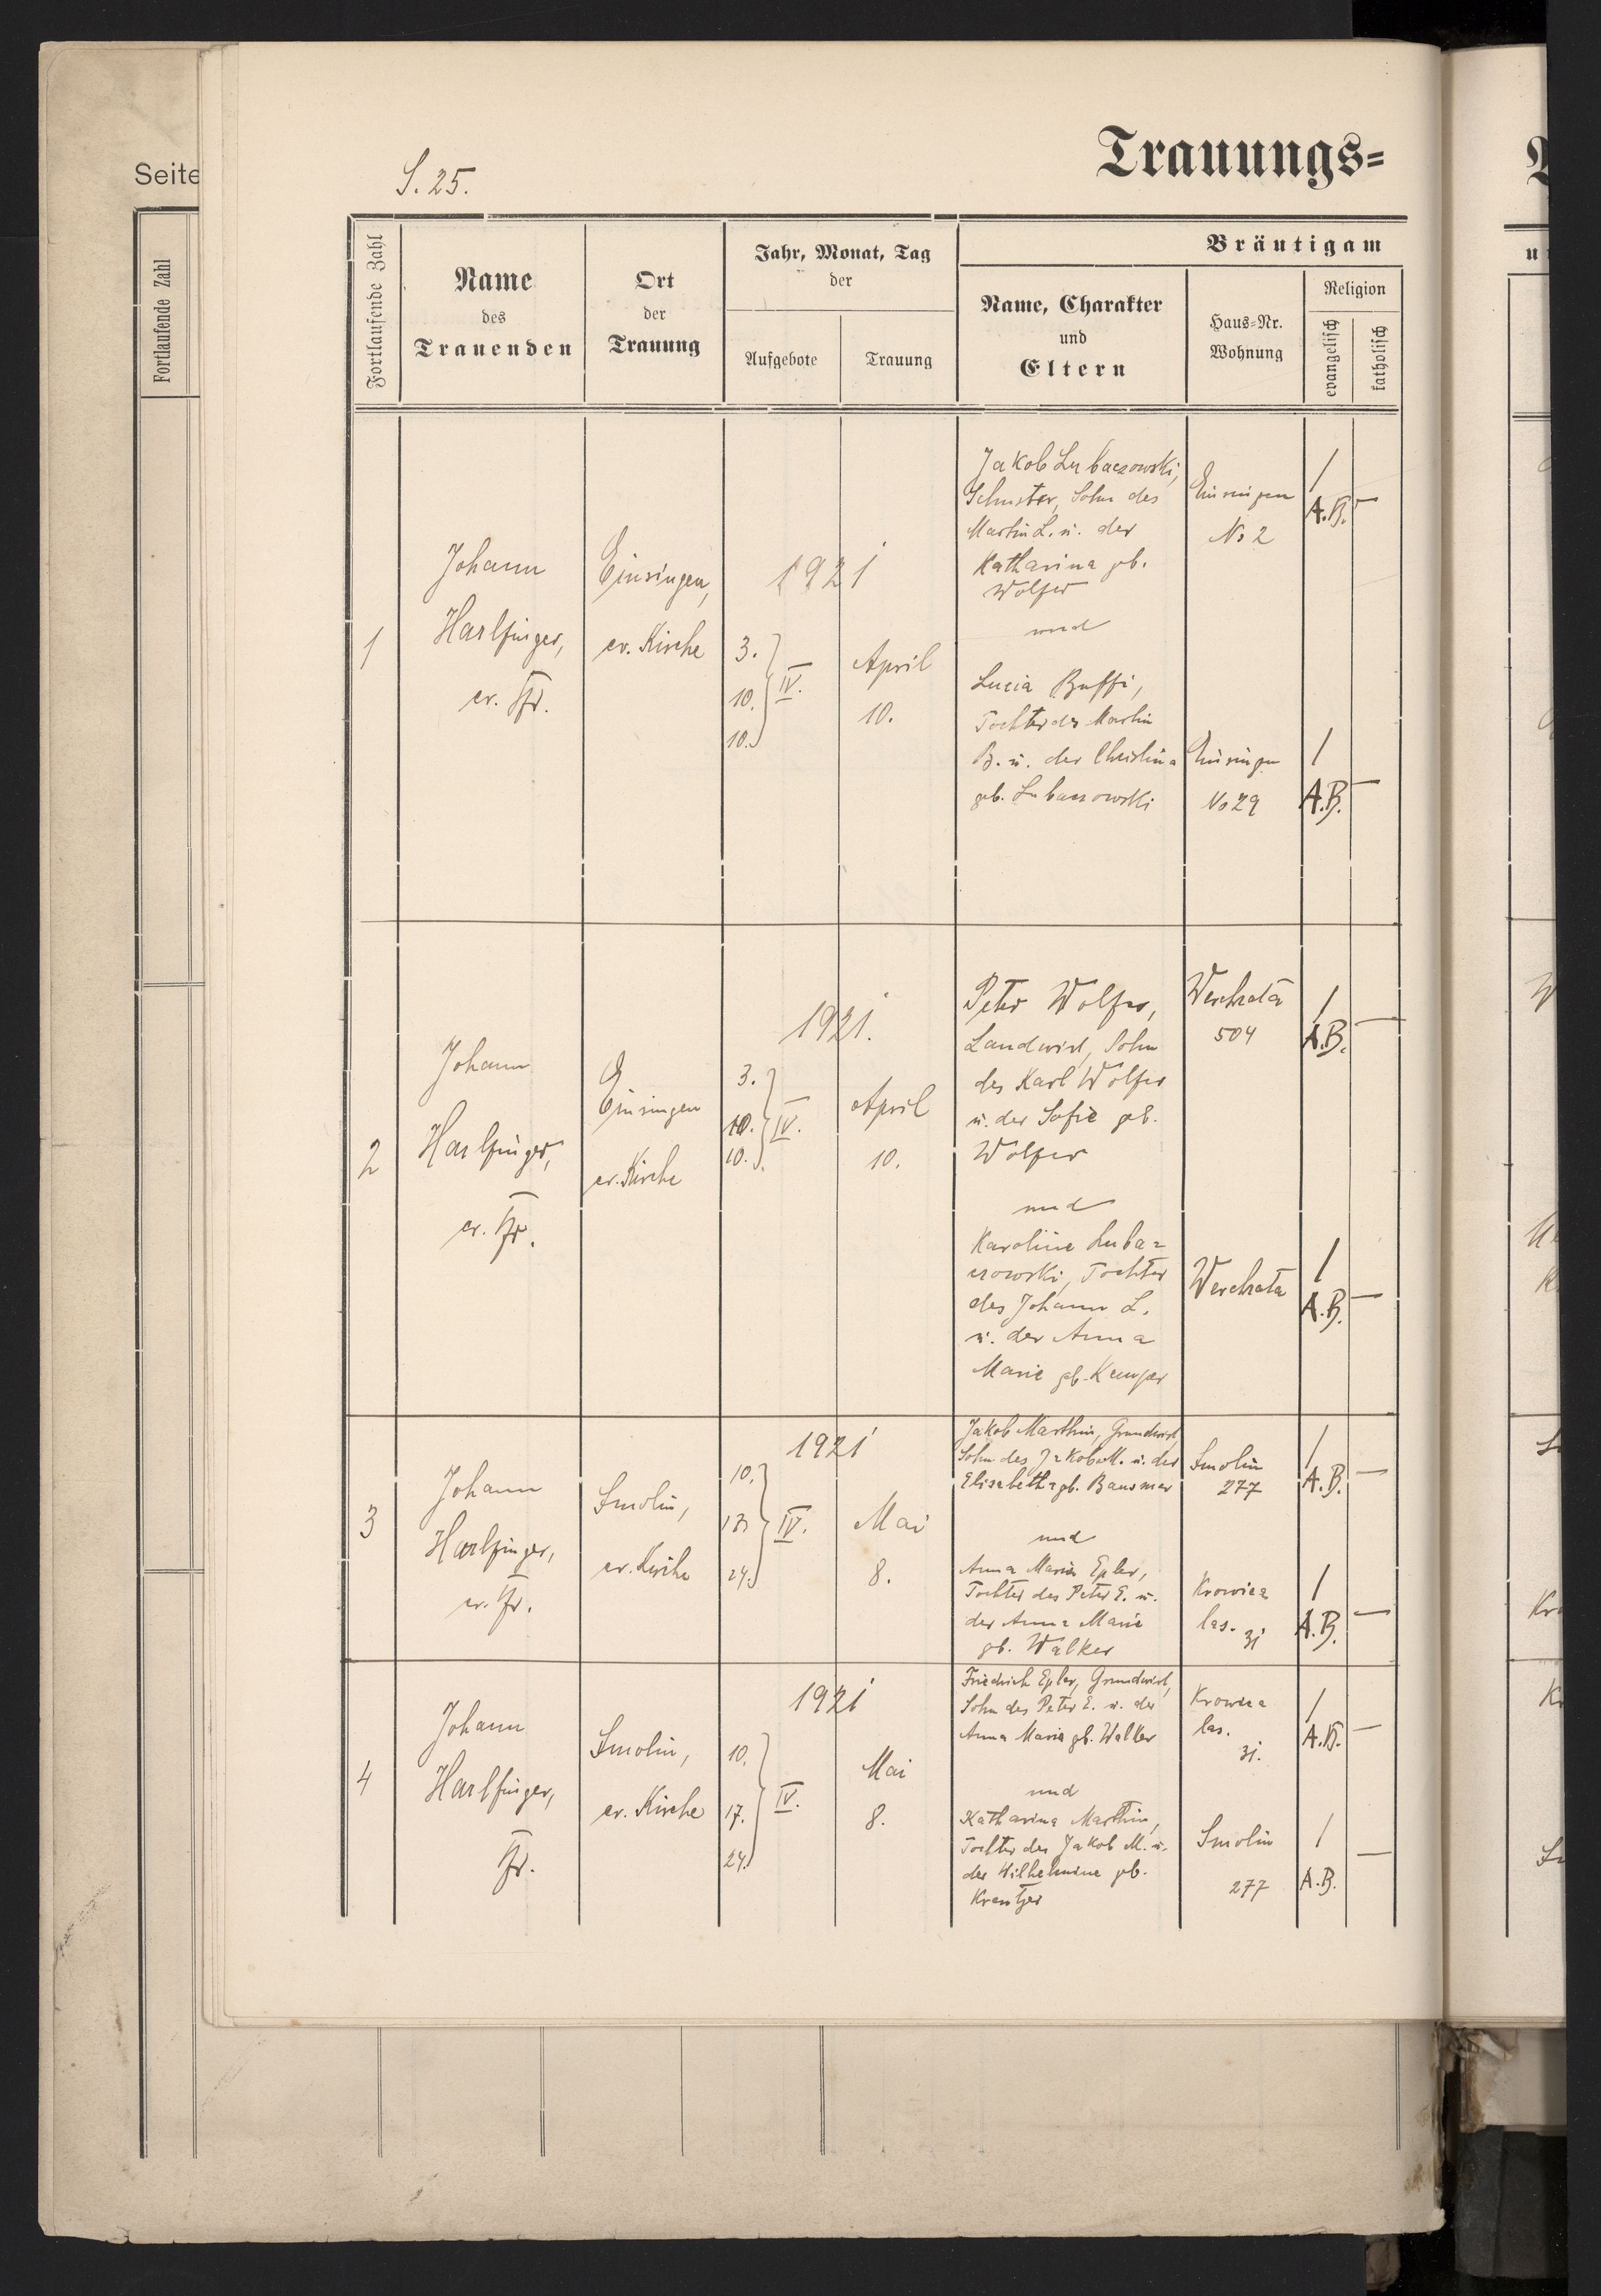 Seite
Fortlaufende Zahl
S. 25.
Trauungs-
Fortlaufende Zahl
Name
des
Trauenden
Ort
der
Trauung
Jahr, Monat, Tag
der
Aufgebote
Trauung
Bräutigam
Name, Charakter
und
Eltern
Haus-Nr.
Wohnung
Religion
evangelisch
katholisch
1
Johann
Harlfinger,
ev. Pfr.
Einsingen,
ev. Kirche
1921
3.
10. IV.
10.
April
10.
Jakob Lubaczowski,
Schuster, Sohn des
Martin L. u. der
Katharina gb.
Wolfer
und
Lucia Buffi,
Tochter des Martin
B. u. der Christina
geb. Lubaczowski
Einsingen
No 2
/
A.B. —
Einsingen
No 29
/
A.B. —
2
Johann
Harlfinger,
ev. Pfr.
Einsingen
ev. Kirche
1921.
3.
10. IV.
10.
April
10.
Peter Wolfer,
Landwirt, Sohn
des Karl Wolfer
u. der Sofie gb.
Wolfer
und
Karoline Luba=
czowski, Tochter
des Johann L.
u. der Anna
Marie gb. Kemper
Werchrata
504
/
A.B. —
Werchrata
/
A.B. —
3
Johann
Harlfinger,
ev. Pfr.
Smolin,
ev. Kirche
1921
10.
17. IV.
24.
Mai
8.
Jakob Marthin, Grundwirt,
Sohn des Jakob M. u. der
Elisabetha gb. Bausmer
und
Anna Maria Epler,
Tochter des Peter E. u.
der Anna Marie
gb. Walker
Smolin
277
/
A.B. —
Krowica
las. 31
/
A.B. —
4
Johann
Harlfinger,
Pfr.
Smolin,
ev. Kirche
1921
10.
17. IV.
24.
Mai
8.
Friedrich Epler, Grundwirt,
Sohn des Peter E. u. der
Anna Maria gb. Walker
und
Katharina Marthin,
Tochter des Jakob M. u.
der Wilhelmine gb.
Kreutzer
Krowica
las.
31.
/
A.B. —
Smolin
277
/
A.B. —